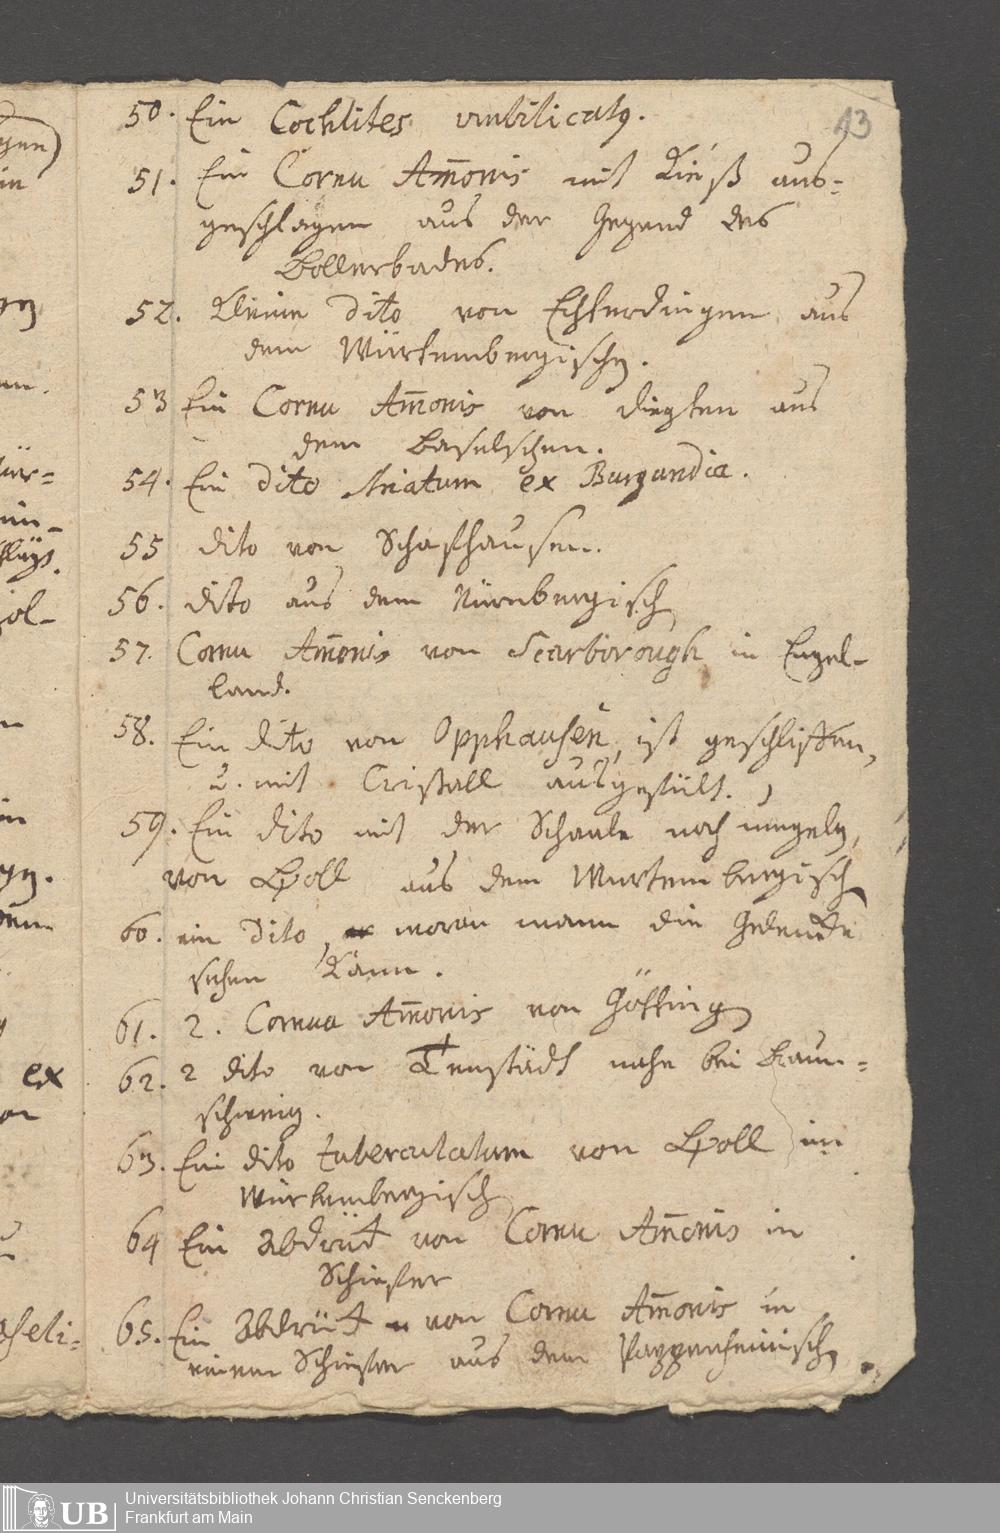 43
50. Ein Cochlites umbilicatq.
51. Ein Cornu Am̄onis mit Kieß aus-
geschlagen aus der Gegend des
Bollerbades.
52. Kleine dito von Echterdingen aus
dem Würtembergischen.
53 Ein Cornu Am̄onis von Diegten aus
dem Baselschen.
54. Ein dito striatum ex Burgundia.
55 dito von Schafhausen.
56. dito aus dem Nürnbergisch
57. Cornu Am̄onis von Scarborough in Engel-
land.
58. Ein dito von Opphausen, ist geschliffen,
u. mit Cristall ausgefüllt.
59. Ein dito mit der Schaale noch umgeben,
von Boll aus dem Wurtembergisch
60. ein dito, woran mann die Gelencke
sehen Kann.
61. 2. Cornua Am̄onis von Göffing
62. 2 dito von Tenstädt nahe bei Braun-
schweig.
63. Ein dito tuberculatum von Boll im
Würtembergisch
64 Ein Abdrück von Cornu Am̄onis in
Schiefer
65. Ein Abdrück von Cornu Am̄onis in
einem Schiefer aus dem Pappenheimisch
ex
Universitätsbibliothek Johann Christian Senckenberg
Frankfurt am Main
UB